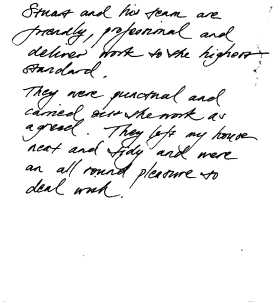 Stuart and his team are
friendly, professional and
deliver work to the highest
standard.
They were punctual and
carried out the work as
agreed. They left my house
neat and tidy and were
an all round pleasure to
deal with.